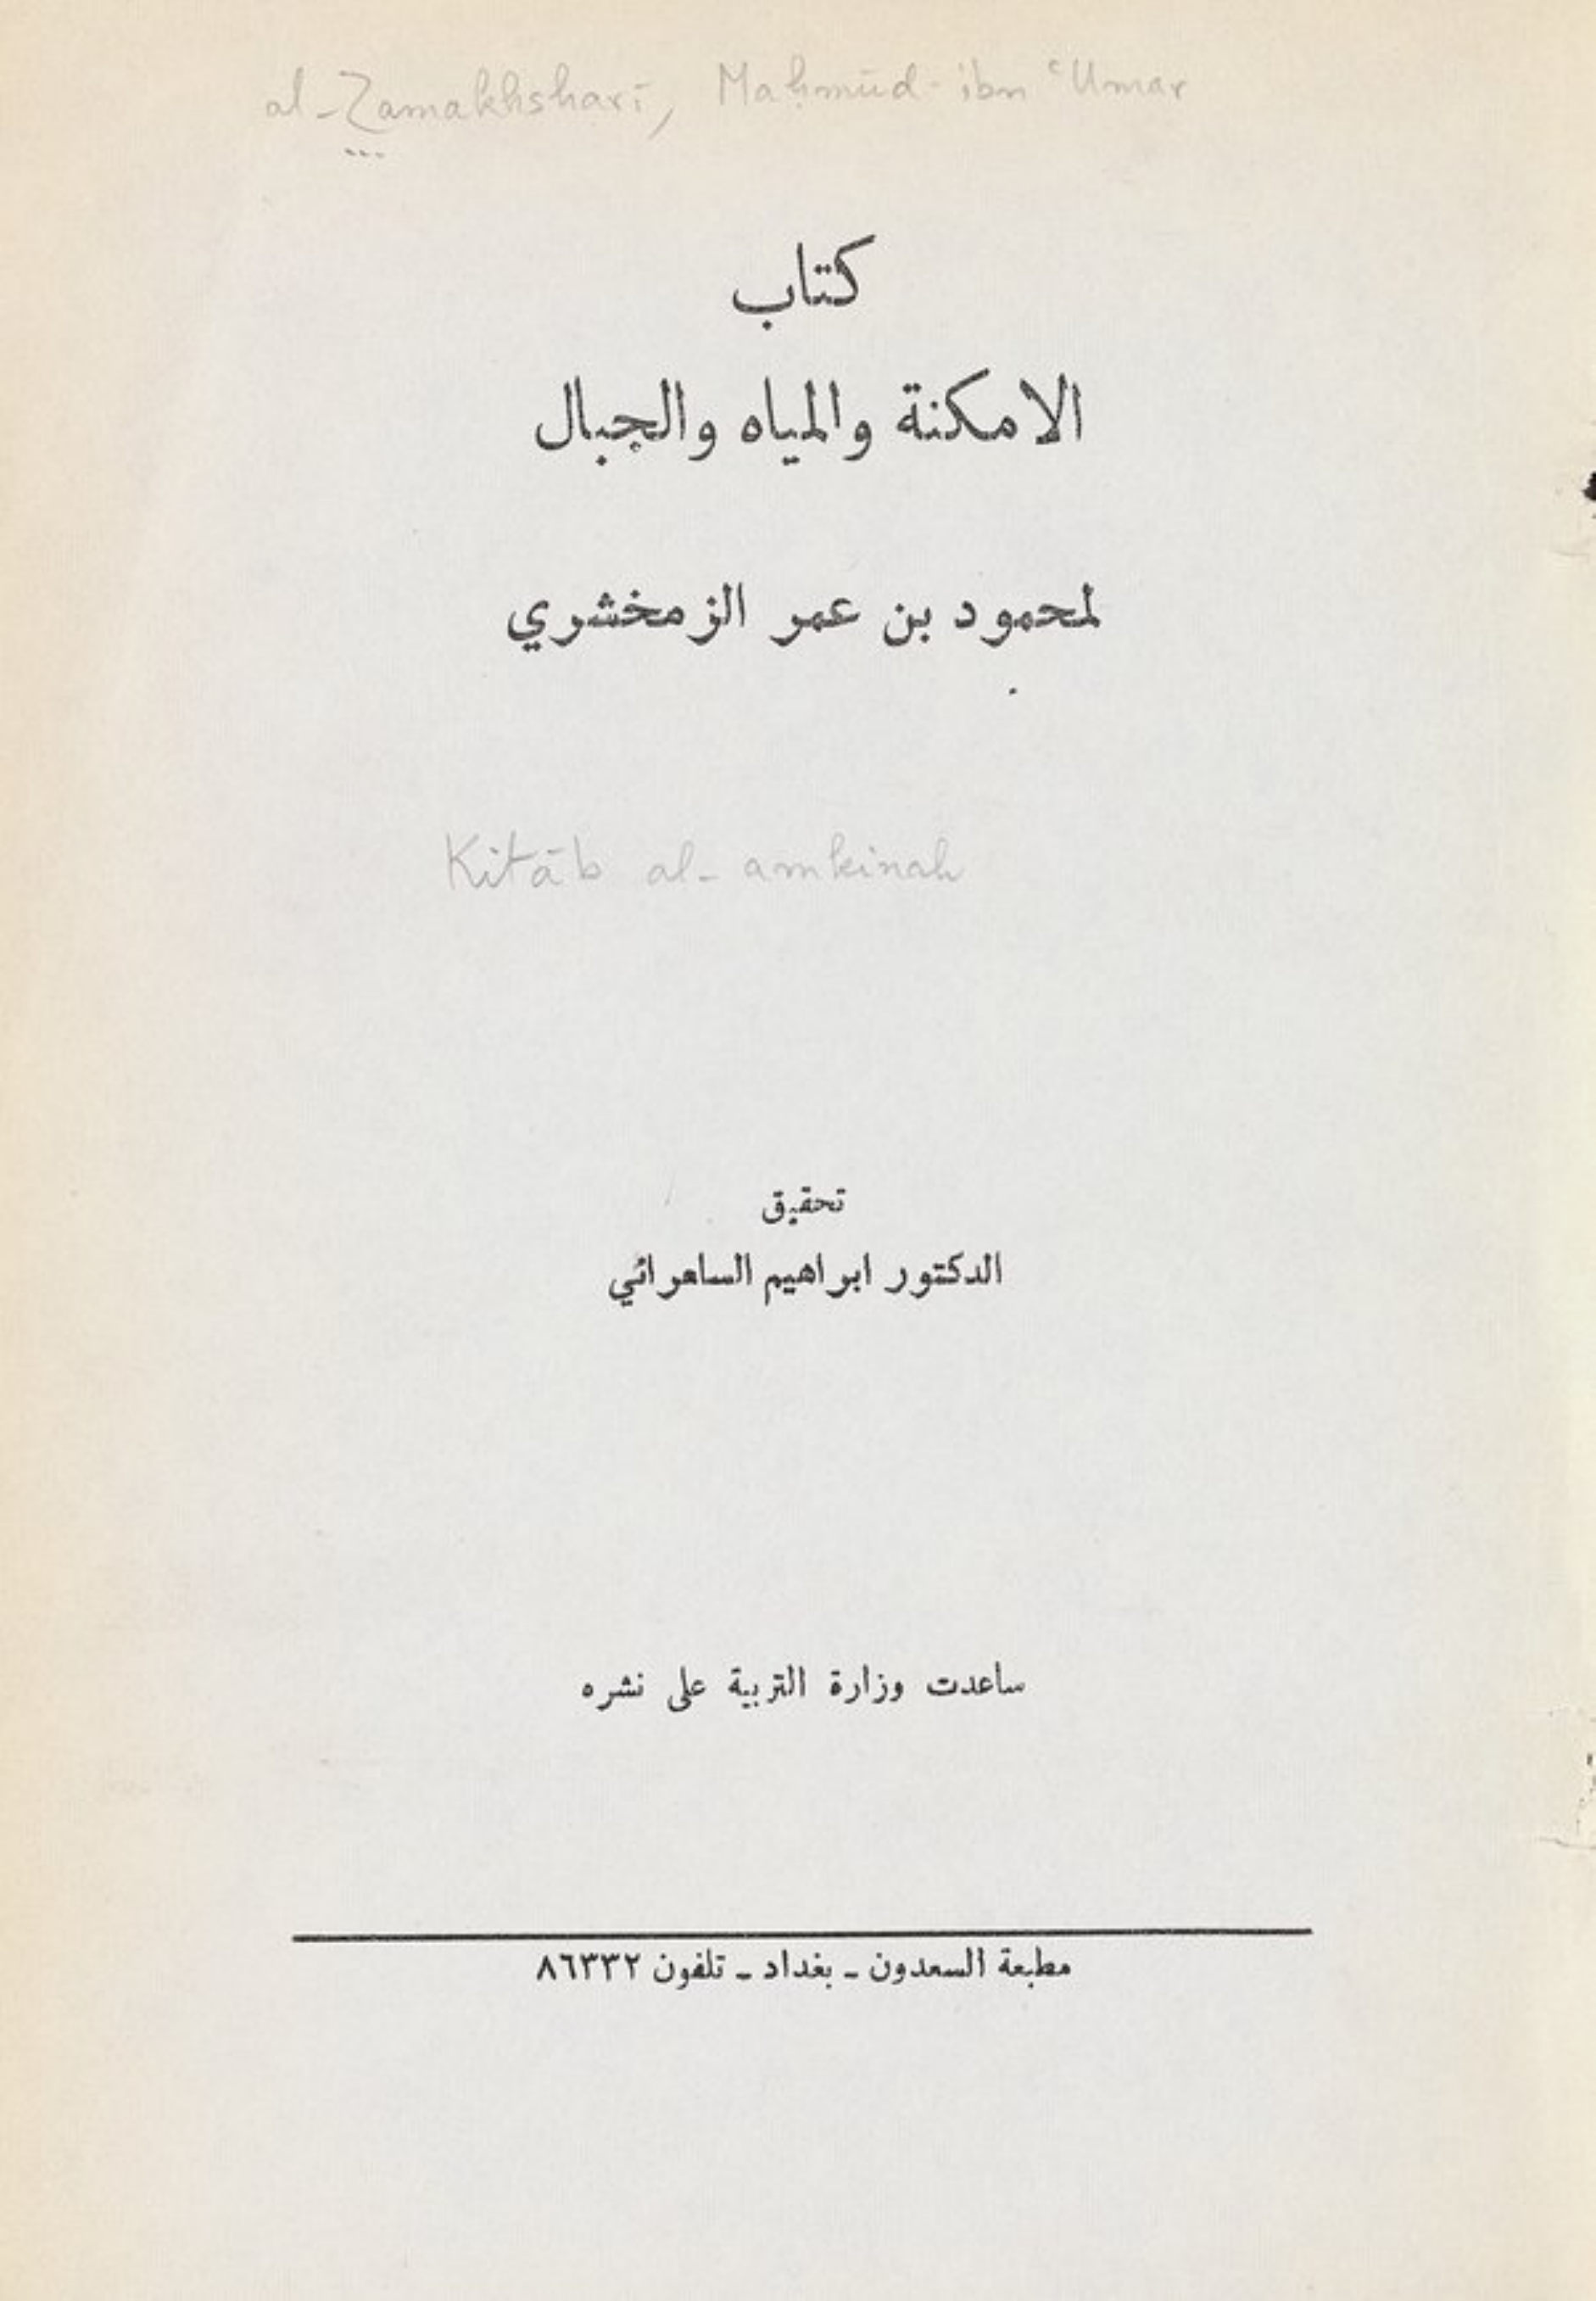 al-Zamakhsharī, Maḥmūd ibn ʿUmar
كتاب
الامكنة والمياه والجبال
لمحمود بن عمر الزمخشري
Kitāb al-amkinah
تحقيق
الدكتور ابراهيم السامرائي
ساعدت وزارة التربية على نشره
مطبعة السعدون ـ بغداد ـ تلفون ٨٦٣٣٢